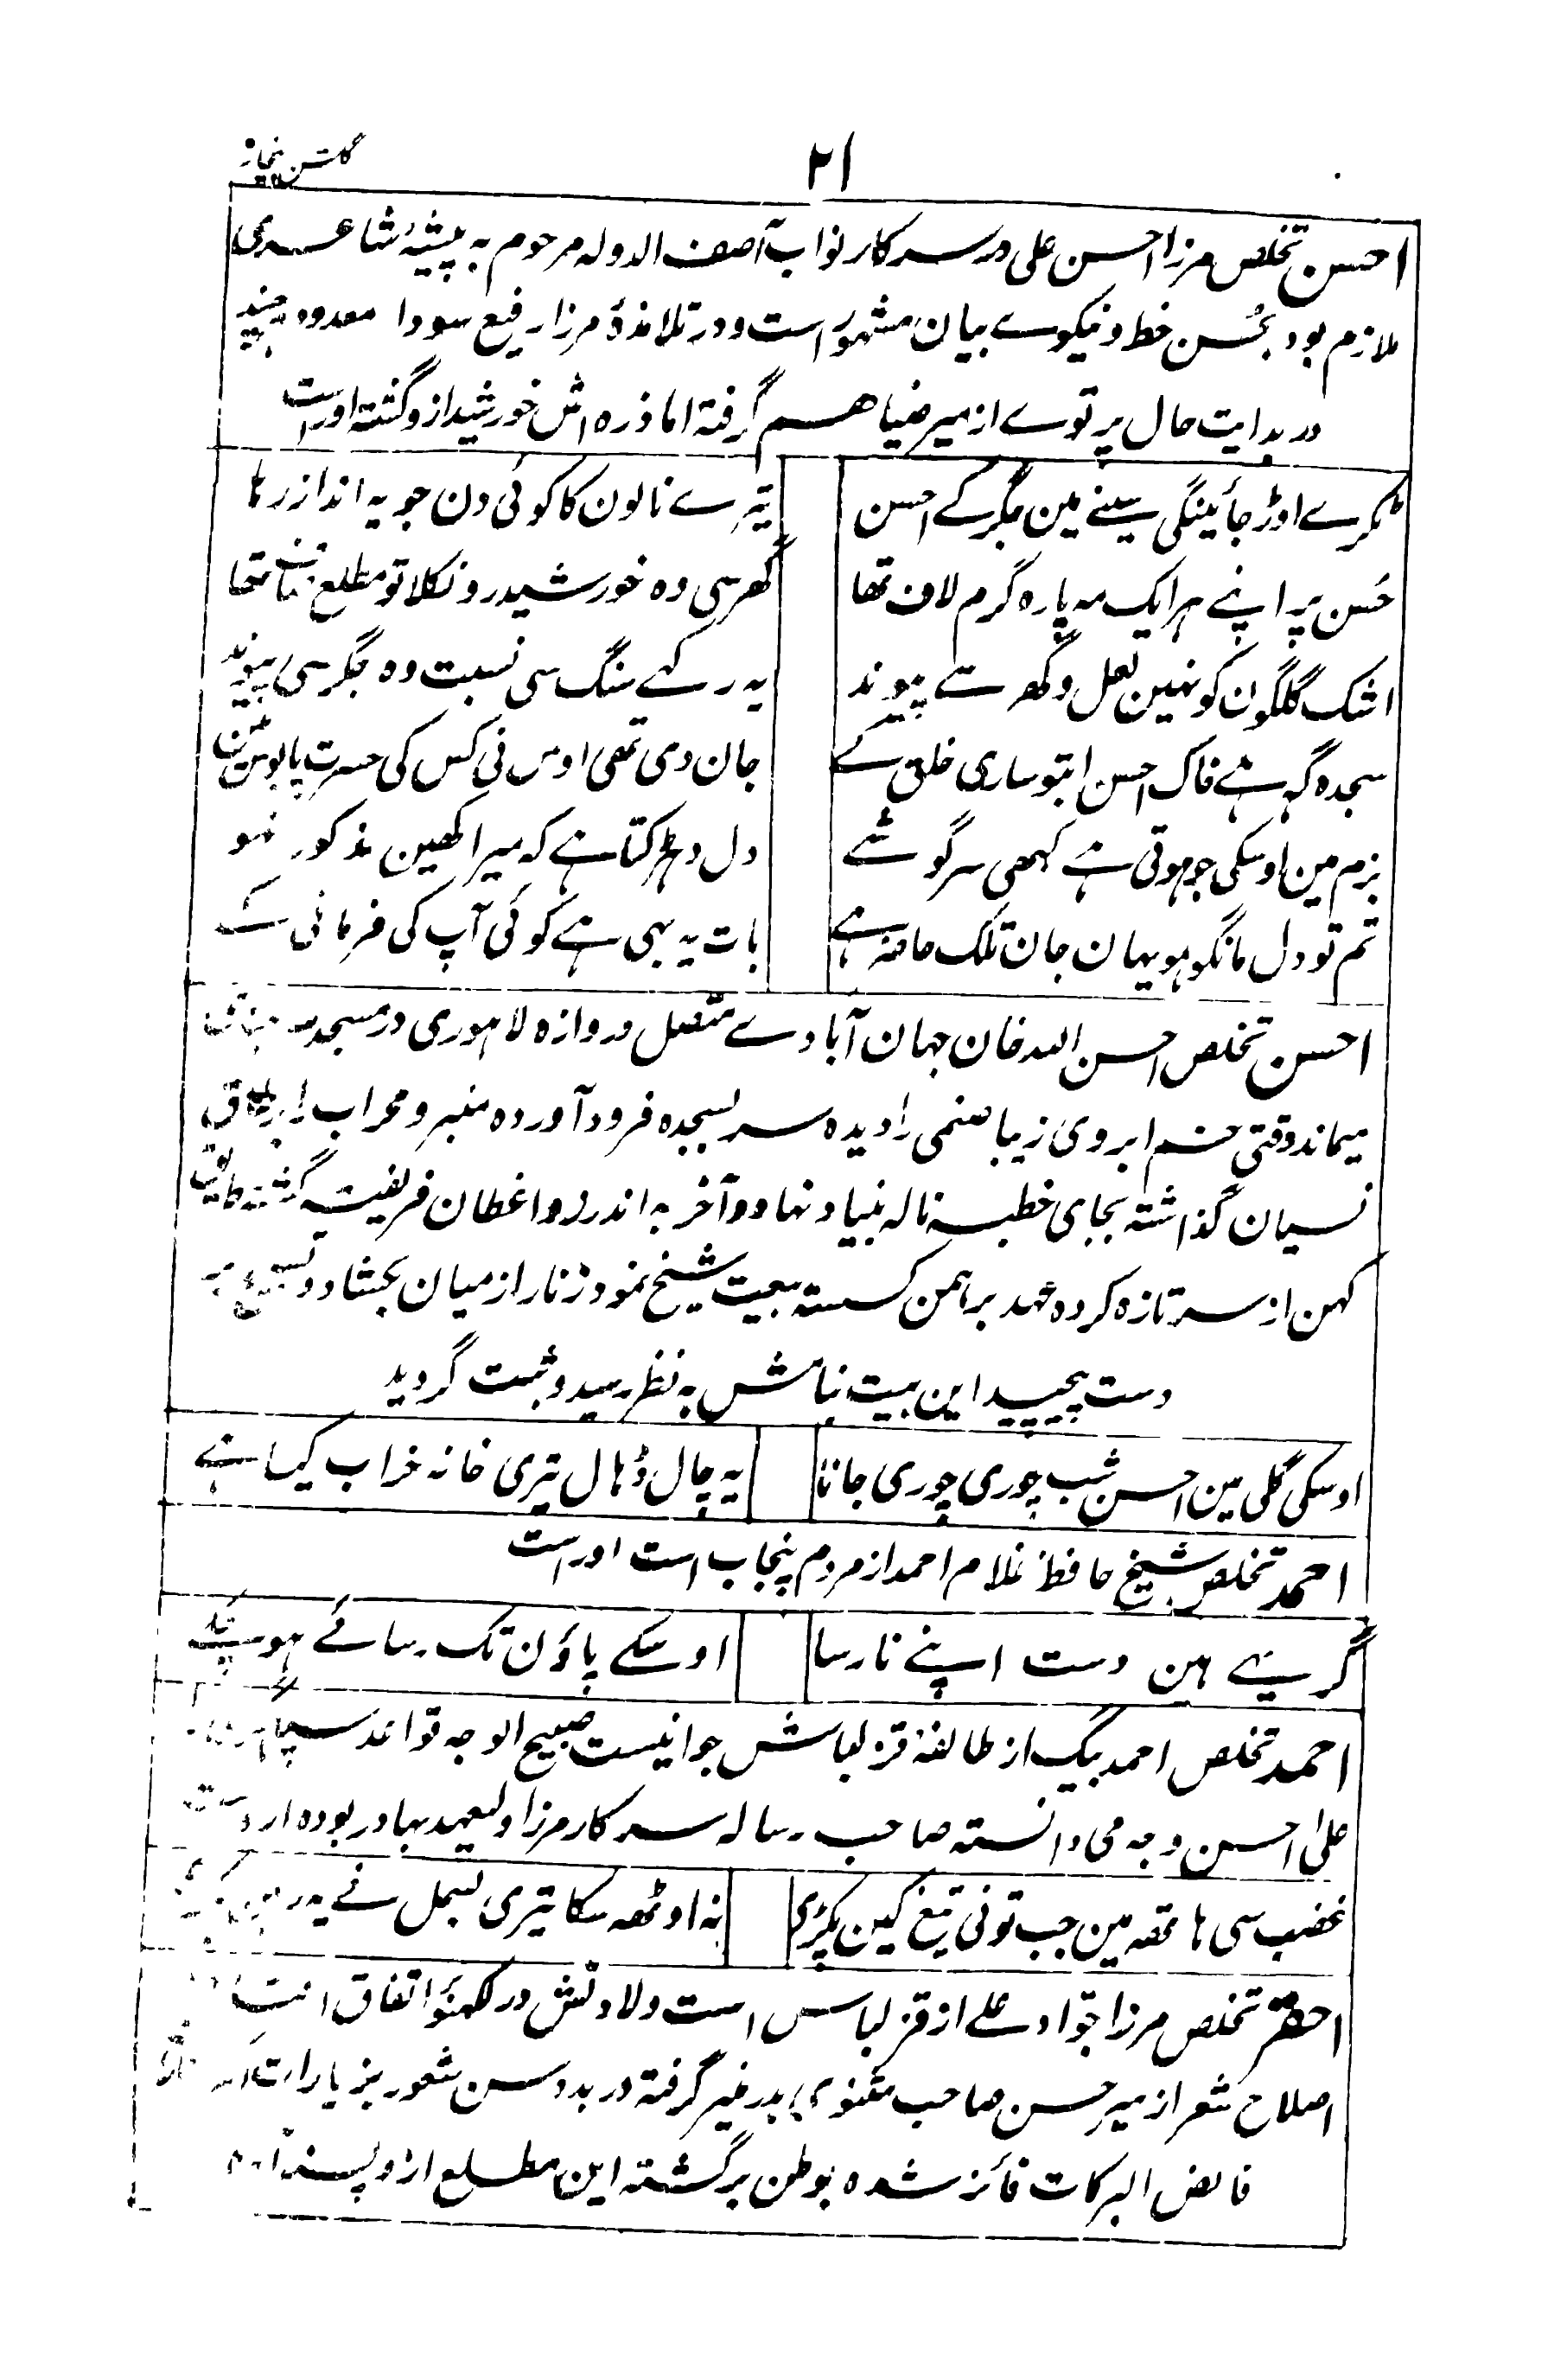 ۲۱
گلشن بیخار
احسن تخلص مرزا احسن علی در سرکار نواب آصف الدولہ مرحوم بہ پیشۂ شاعری
ملازم بود بحُسن خط و نیکوے بیان مشہور است و در تلامذۂ مرزا رفیع سودا معدود ہر چند
در بدایت حال پرتوے از میر ضیا ہم گرفتہ اما ذرہ اش خورشید ازو گشتہ اوراست
ٹکرے اوڑ جائینگی سینے مین جگر کے احسن
تیرے نالون کا کوئی دن جو یہ انداز رہا
حُسن پر اپنے ہر ایک مہ پارہ گرم لاف تھا
گھر سی وہ خورشید رو نکلا تو مطلع صاف تھا
اشک گلگون کو نہین لعل و گہر سے پیوند
یہ رکہے سنگ سی نسبت وہ جگر سی پیوند
سجدہ گہ ہے خاک احسن ابتو ساری خلق کے
جان دی تھی اوس نی کس کی حسرت پابوس مین
بزم مین اوسکی جو ہوتی ہے کبھی سرگوشے
دل دہڑکتا ہے کہ میرا کہین مذکور نہو
تم تو دل مانگو ہو یہان جان تلک حاضر ہے
بات یہ بہی ہے کوئی آپ کی فرمانی کے
احسن تخلص احسن اللہ خان جہان آبادے متصل دروازہ لاہوری در مسجد
میماند وقتی خم ابروی زیبا صنمی را دیدہ سر بسجدہ فرود آوردہ منبر و محراب را بر طاق
نسیان گذاشتہ بجای خطبہ نالہ بنیاد نہاد و آخر بہ اندرز واعظان فریفتہ گشتہ طریق
کہن از سر تازہ کردہ عہد برہمن گسستہ بیعت شیخ نمود زنار از میان بکشاد و تسبیح بر
دست پیچید این بیت بنامش بہ نظر رسید و ثبت گردید
اوسکی گلی مین احسن شب چوری چوری جانا
یہ چال ڈہال تیری خانہ خراب کیا ہے
احمد تخلص شیخ حافظ غلام احمد از مردم پنجاب است اوراست
گریہی ہین دست اپنے نارسا
اوسکے پاؤن تک رسائے ہو
احمد تخلص احمد بیگ از طائفۂ قزلباش جوانیست صبیح الوجہ قواعد
علی احسن وجہ می دانستہ صاحب رسالہ سرکار مرزا ولیعہد بہادر بودہ
غضب سی ہاتھہ مین جب تونی تیغ کین پکڑی
نہ اوٹھہ سکا تیری بسمل نے یہ
احقر تخلص مرزا جواد علے از قزلباس است ولادتش در لکہنؤ اتفاق
اصلاح شعر از میر حسن صاحب مثنوی بدر منیر گرفتہ در بدو سن شعور بزیارات
فائض البرکات فائز شدہ بوطن برگشتہ این مطلع ازو پسند